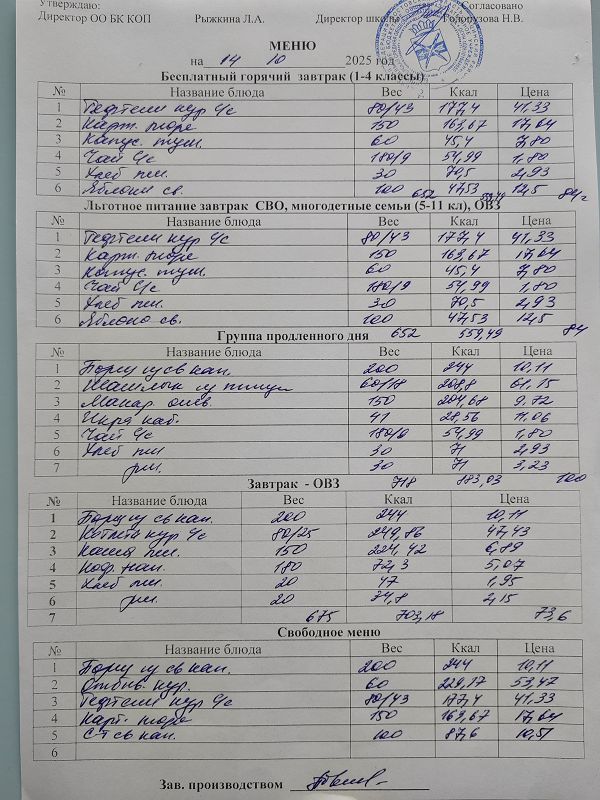 Утверждаю: Согласовано
Директор ОО БК КОП Рыжкина Л.А. Директор школы Годорузова Н.В.
МЕНЮ
на 14 10 2025 год
Бесплатный горячий завтрак (1-4 классы)
№ Название блюда Вес Ккал Цена
1 Тефтели кур с/с 80/43 177,4 41,33
2 Карт. пюре 150 163,67 17,64
3 Капус. туш. 60 45,4 7,80
4 Чай с/с 180/9 54,99 1,80
5 Хлеб пш. 30 70,5 2,93
6 Яблоки св. 100 47,53 12,5
652 84
Льготное питание завтрак СВО, многодетные семьи (5-11 кл), ОВЗ
№ Название блюда Вес Ккал Цена
1 Тефтели кур с/с 80/43 177,4 41,33
2 Карт. пюре 150 163,67 17,64
3 Капус. туш. 60 45,4 7,80
4 Чай с/с 180/9 54,99 1,80
5 Хлеб пш. 30 70,5 2,93
6 Яблоко св. 100 47,53 12,5
652 559,49 84
Группа продленного дня
№ Название блюда Вес Ккал Цена
1 Борщ из св кап. 200 244 10,11
2 Шашлык 208,8 61,15
3 Макар. отв. 150 204,68 9.72
4 Икра каб. 41 28,56 11,06
5 Чай с/с 54,99 1,80
6 Хлеб пш 30 71 2,93
7 рж. 30 71 3,23
718 883,03 100
Завтрак - ОВЗ
№ Название блюда Вес Ккал Цена
1 Борщ из св кап. 200 244 10,11
2 Котлета кур с/с 80/25 249,86 47,43
3 Каша пш. 150 224,42 6,89
4 Коф. нап. 180 72,3 5,07
5 Хлеб пш. 20 47 1,95
6 рж. 20 2,15
7 675 703,18 73,6
Свободное меню
№ Название блюда Вес Ккал Цена
1 Борщ из св кап. 200 244 10,11
2 Отбив. кур. 60 229,17 53,47
3 Тефтели кур с/с 80/43 177,4 41,33
4 Карт. пюре 150 163,67 17,64
5 СТ св кап. 100 87,6 10,51
6
Зав. производством